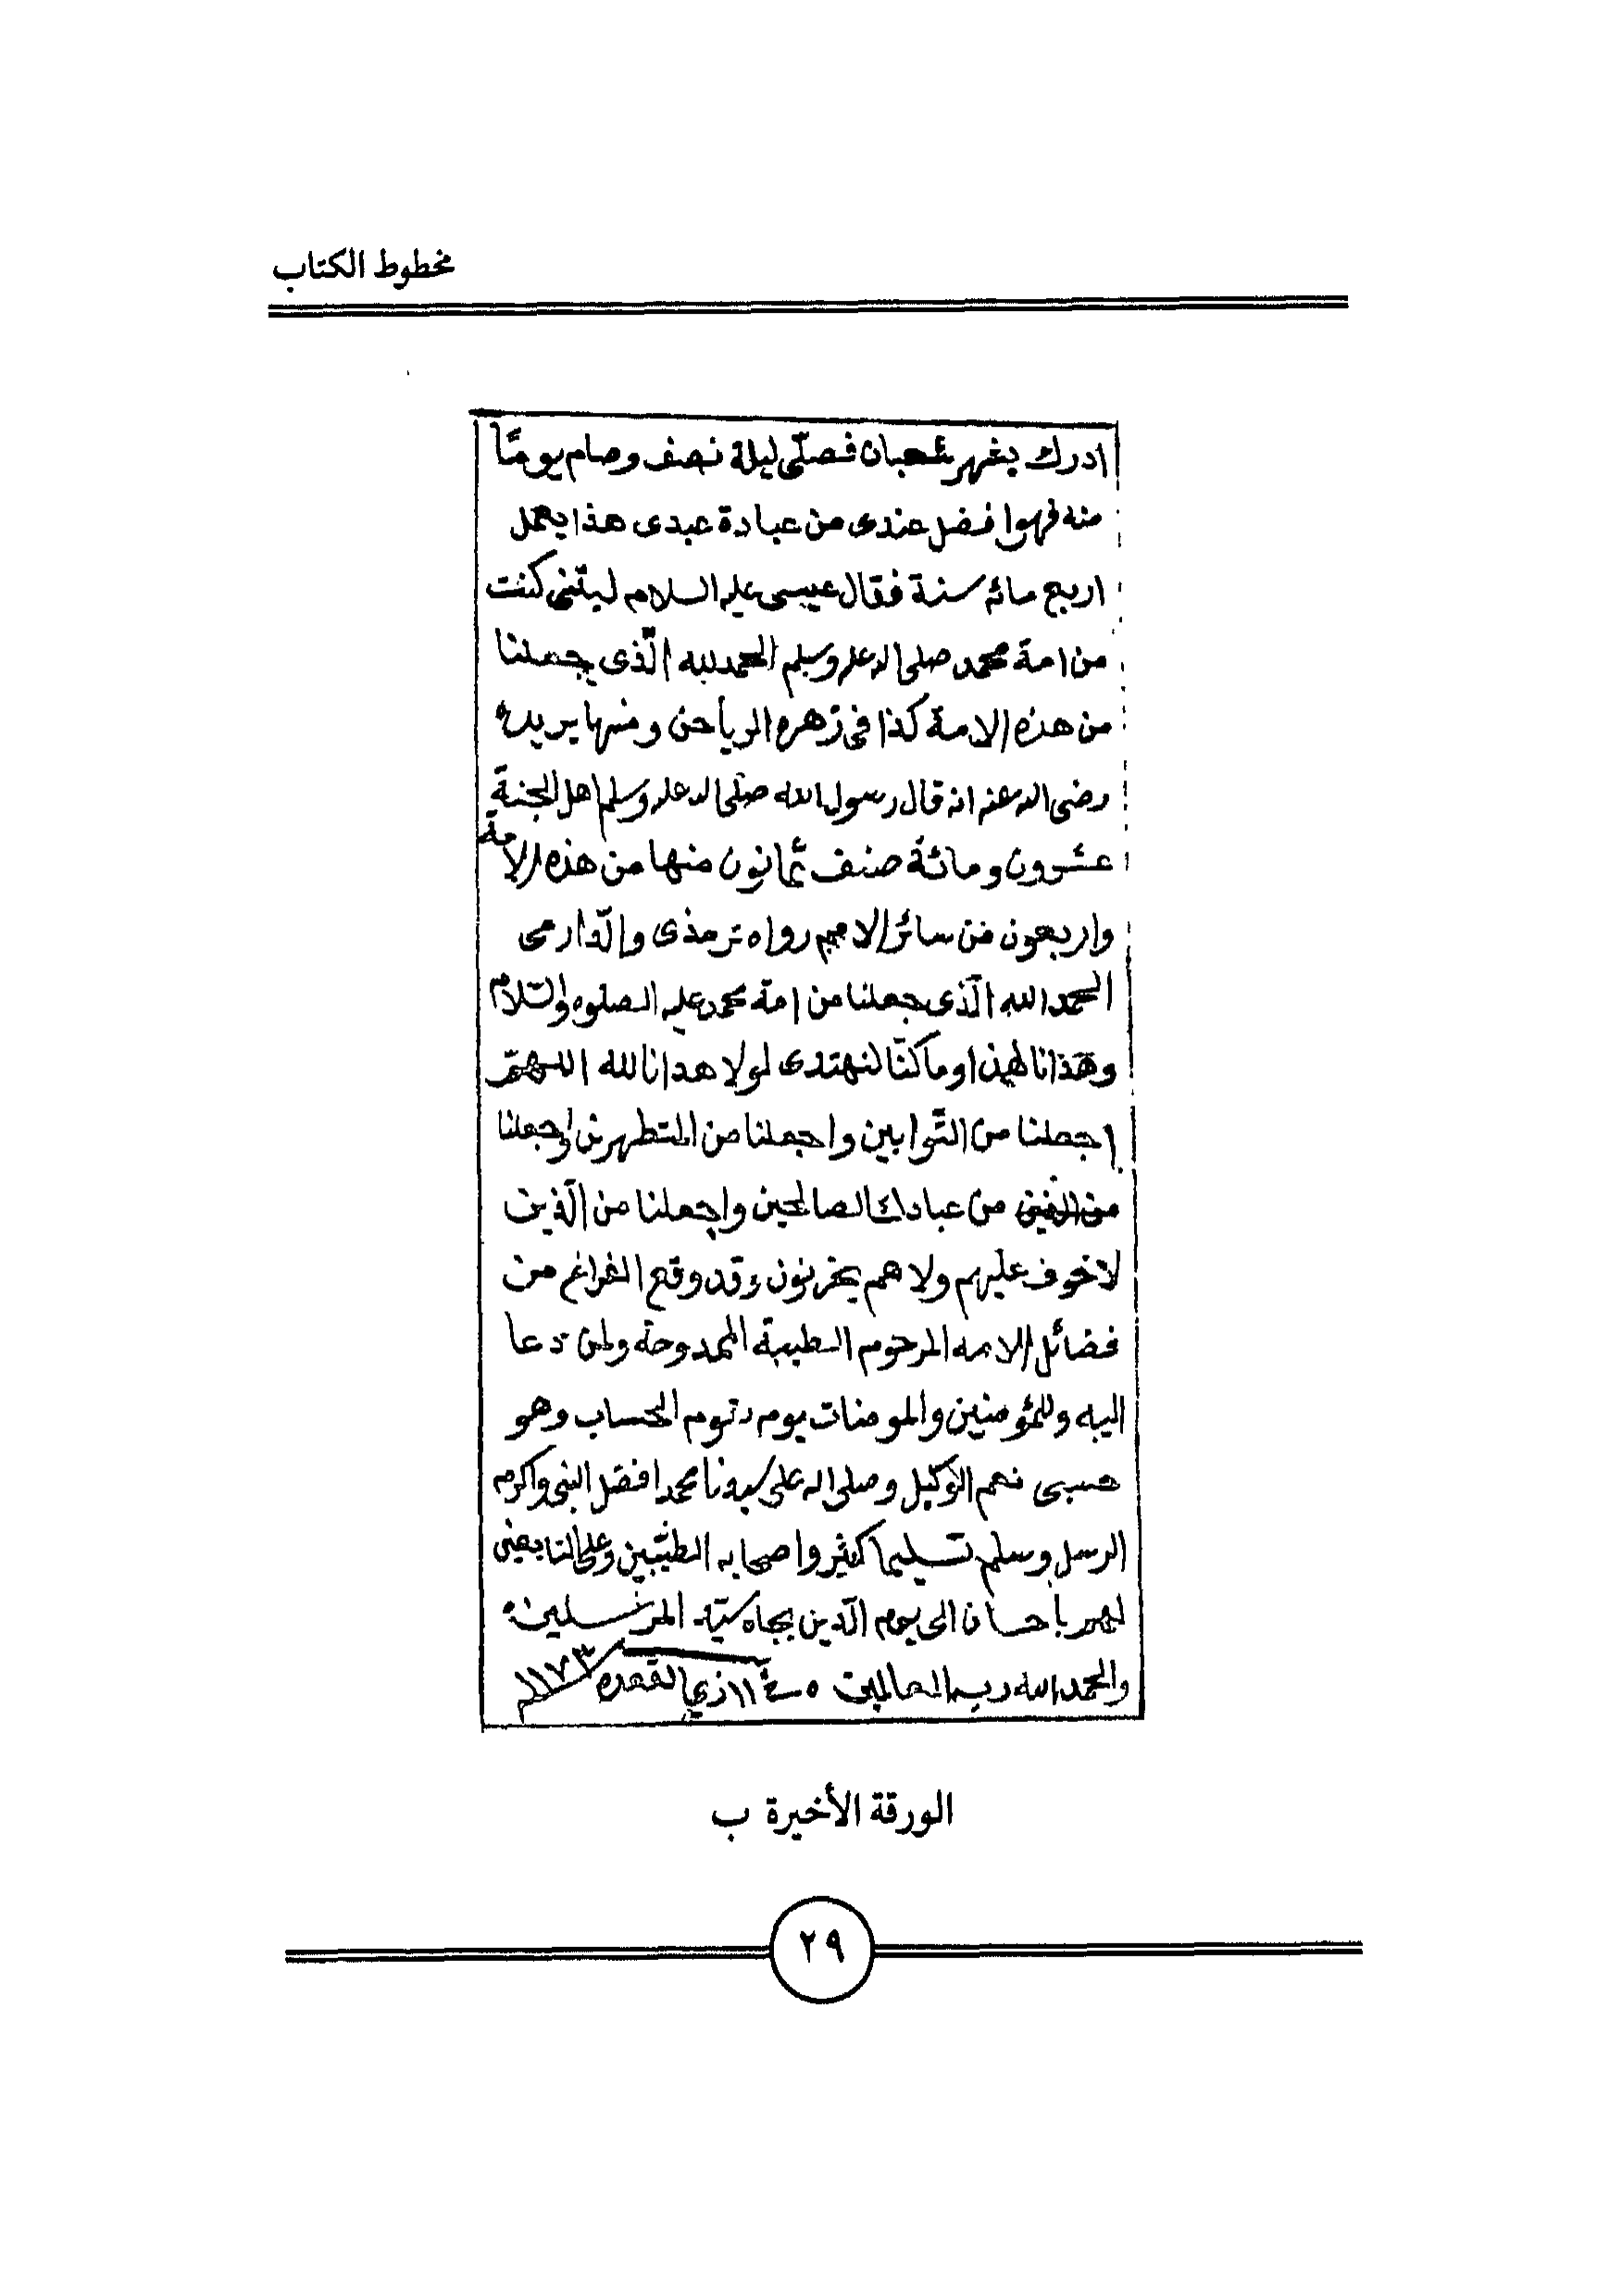 مخطوط الكتاب
ادرك بشهر شعبان فصلّى ليلة نصف وصام يومًا
منه فهوا فضل عندى من عبادة عبدى هذا يعمل
اربع مائه سنة فقال عيسى عليه السلام ليتنى كنت
من امة محمد صلى الله عليه وسلم الحمد لله الّذى جعلنا
من هذه الامة كذا فى زهره الرياحن ومنها بريده
رضى الله عنه انه قال رسول الله صلى الله عليه وسلم اهل الجنة
عشرون ومائة صنف ثمانون منها من هذه الامة
واربعون من سائر الامم رواه ترمذى والدّارمى
الحمد الله الّذى جعلنا من امة محمد عليه الصلوه والسّلام
وهدانا لهذا وما كنّا لنهتدى لولا هدانا لله اللهمّ
اجعلنا من التّوابين واجعلنا من المتطهرين واجعلنا
من عبادك الصالحين واجعلنا من الّذين
لا خوف عليهم ولا هم يحزنون وقد وقع الفراغ من
فضائل الامه المرحوم الطيبة الممدوحة ولمن دعا
اليه وللمؤمنين والمومنات يوم تقوم الحساب وهو
حسبى نعم الوكيل وصلى الله على سيدنا محمد افضل النبى واكرم
الرسل وسلم تسليما كثير واصحابه الطيّبين وعلى التابعين
لهم باحسان الى يوم الّدين بجاه سيّد المرسلين
والحمد الله رب العالمين سنة ١١ ذي القعده ١١٧٣
الورقة الأخيرة ب
٢٩